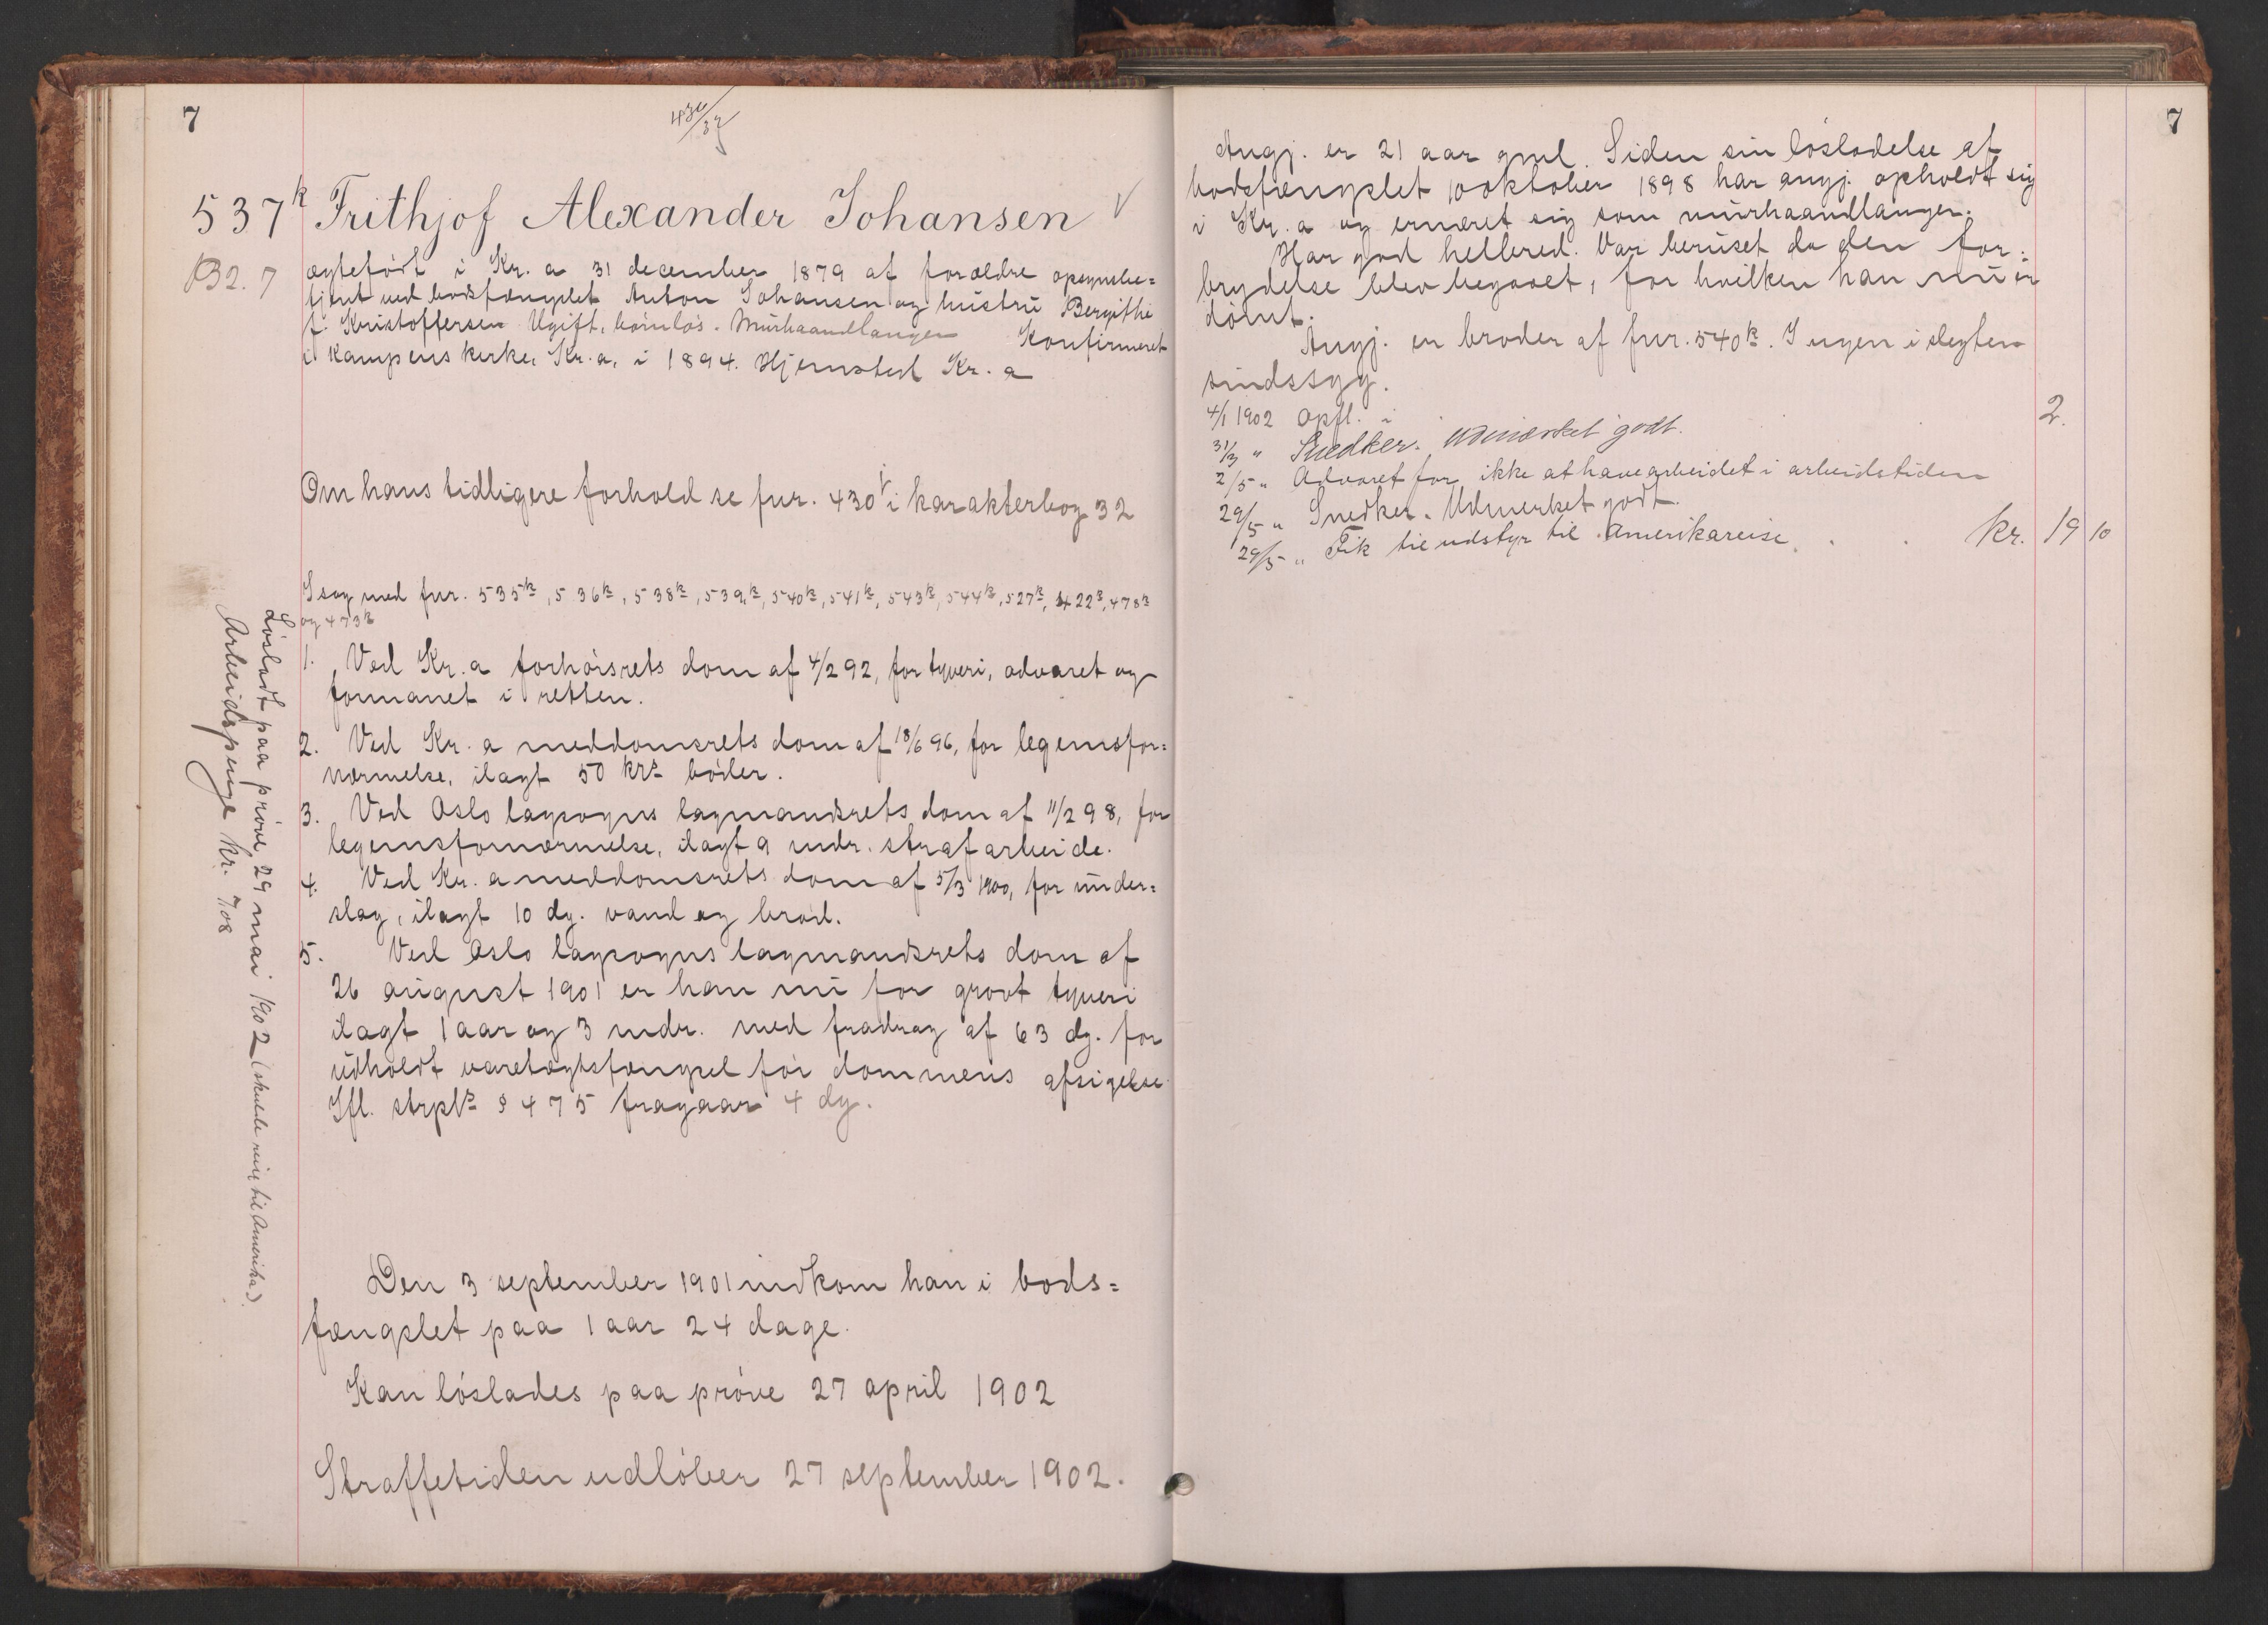 7
430/32
537k Frithjof Alexander Johansen
B2.7
ægtefödt i Kr.a 31 december 1879 af forældre opsynsbe=
tjent ved bodsfængslet Anton Johansen og hustru Bergithe
f. Kristoffersen Ugift, barnlös. Murhaandlanger Konfirmeret
i Kampens kirke, Kr.a, i 1894. Hjemsted Kr.a
Om hans tidligere forhold se fnr. 430i i karakterbog 32
I sag med fnr. 535k, 536k, 538k, 539k, 540k, 541k, 543k, 544k, 527k, 422k, 478k
og 473k
1. Ved Kr.a forhörsrets dom af 4/2 92, for tyveri, advaret og
formanet i retten.
2. Ved Kr.a meddomsrets dom af 18/6 96, for legemsfor=
nærmelse, ilagt 50 krs böder.
3. Ved Oslo lagsogns lagmandsrets dom af 11/2 98, for
legemsfornærmelse, ilagt 9 mdr. strafarbeide.
4. Ved Kr.a meddomsrets dom af 5/3 1900, for under=
slag, ilagt 10 dg. vand og bröd.
5. Ved Oslo lagsogns lagmandsrets dom af
26 august 1901 er han nu for grovt tyveri
ilagt 1 aar og 3 mdr. med fradrag af 63 dg. for
udholdt varetægtsfængsel för dommens afsigelse
Ifl. strpl § 475 fragaar 4 dg.
Den 3 september 1901 indkom han i bods=
fængslet paa 1 aar 24 dage.
Kan löslades paa pröve 27 april 1902
Straffetiden udlöber 27 september 1902.
Lösladt paa pröve 29 mai 1902 (skulde reise til Amerika).
Arbeidspenge kr. 708
7
Angj. er 21 aar gml. Siden sin lösladelse af
bodsfængslet 10 oktober 1898 har angj. opholdt sig
i Kr.a og ernæret sig som murhaandlanger.
Har god helbred. Var beruset da den for=
brydelse blev begaaet, for hvilken han nu er
dömt.
Angj. er broder af fnr. 540k. Ingen i slegten
sindssyg.
4/1 1902 Opfl. i 2.
31/3 " Snedker. Udmærket godt.
2/5 " Advaret for ikke at have arbeidet i arbeidstiden
29/5 " Snedker. Udmerket godt.
29/5 " Fik til udstyr til Amerikareise . . kr. 19 10